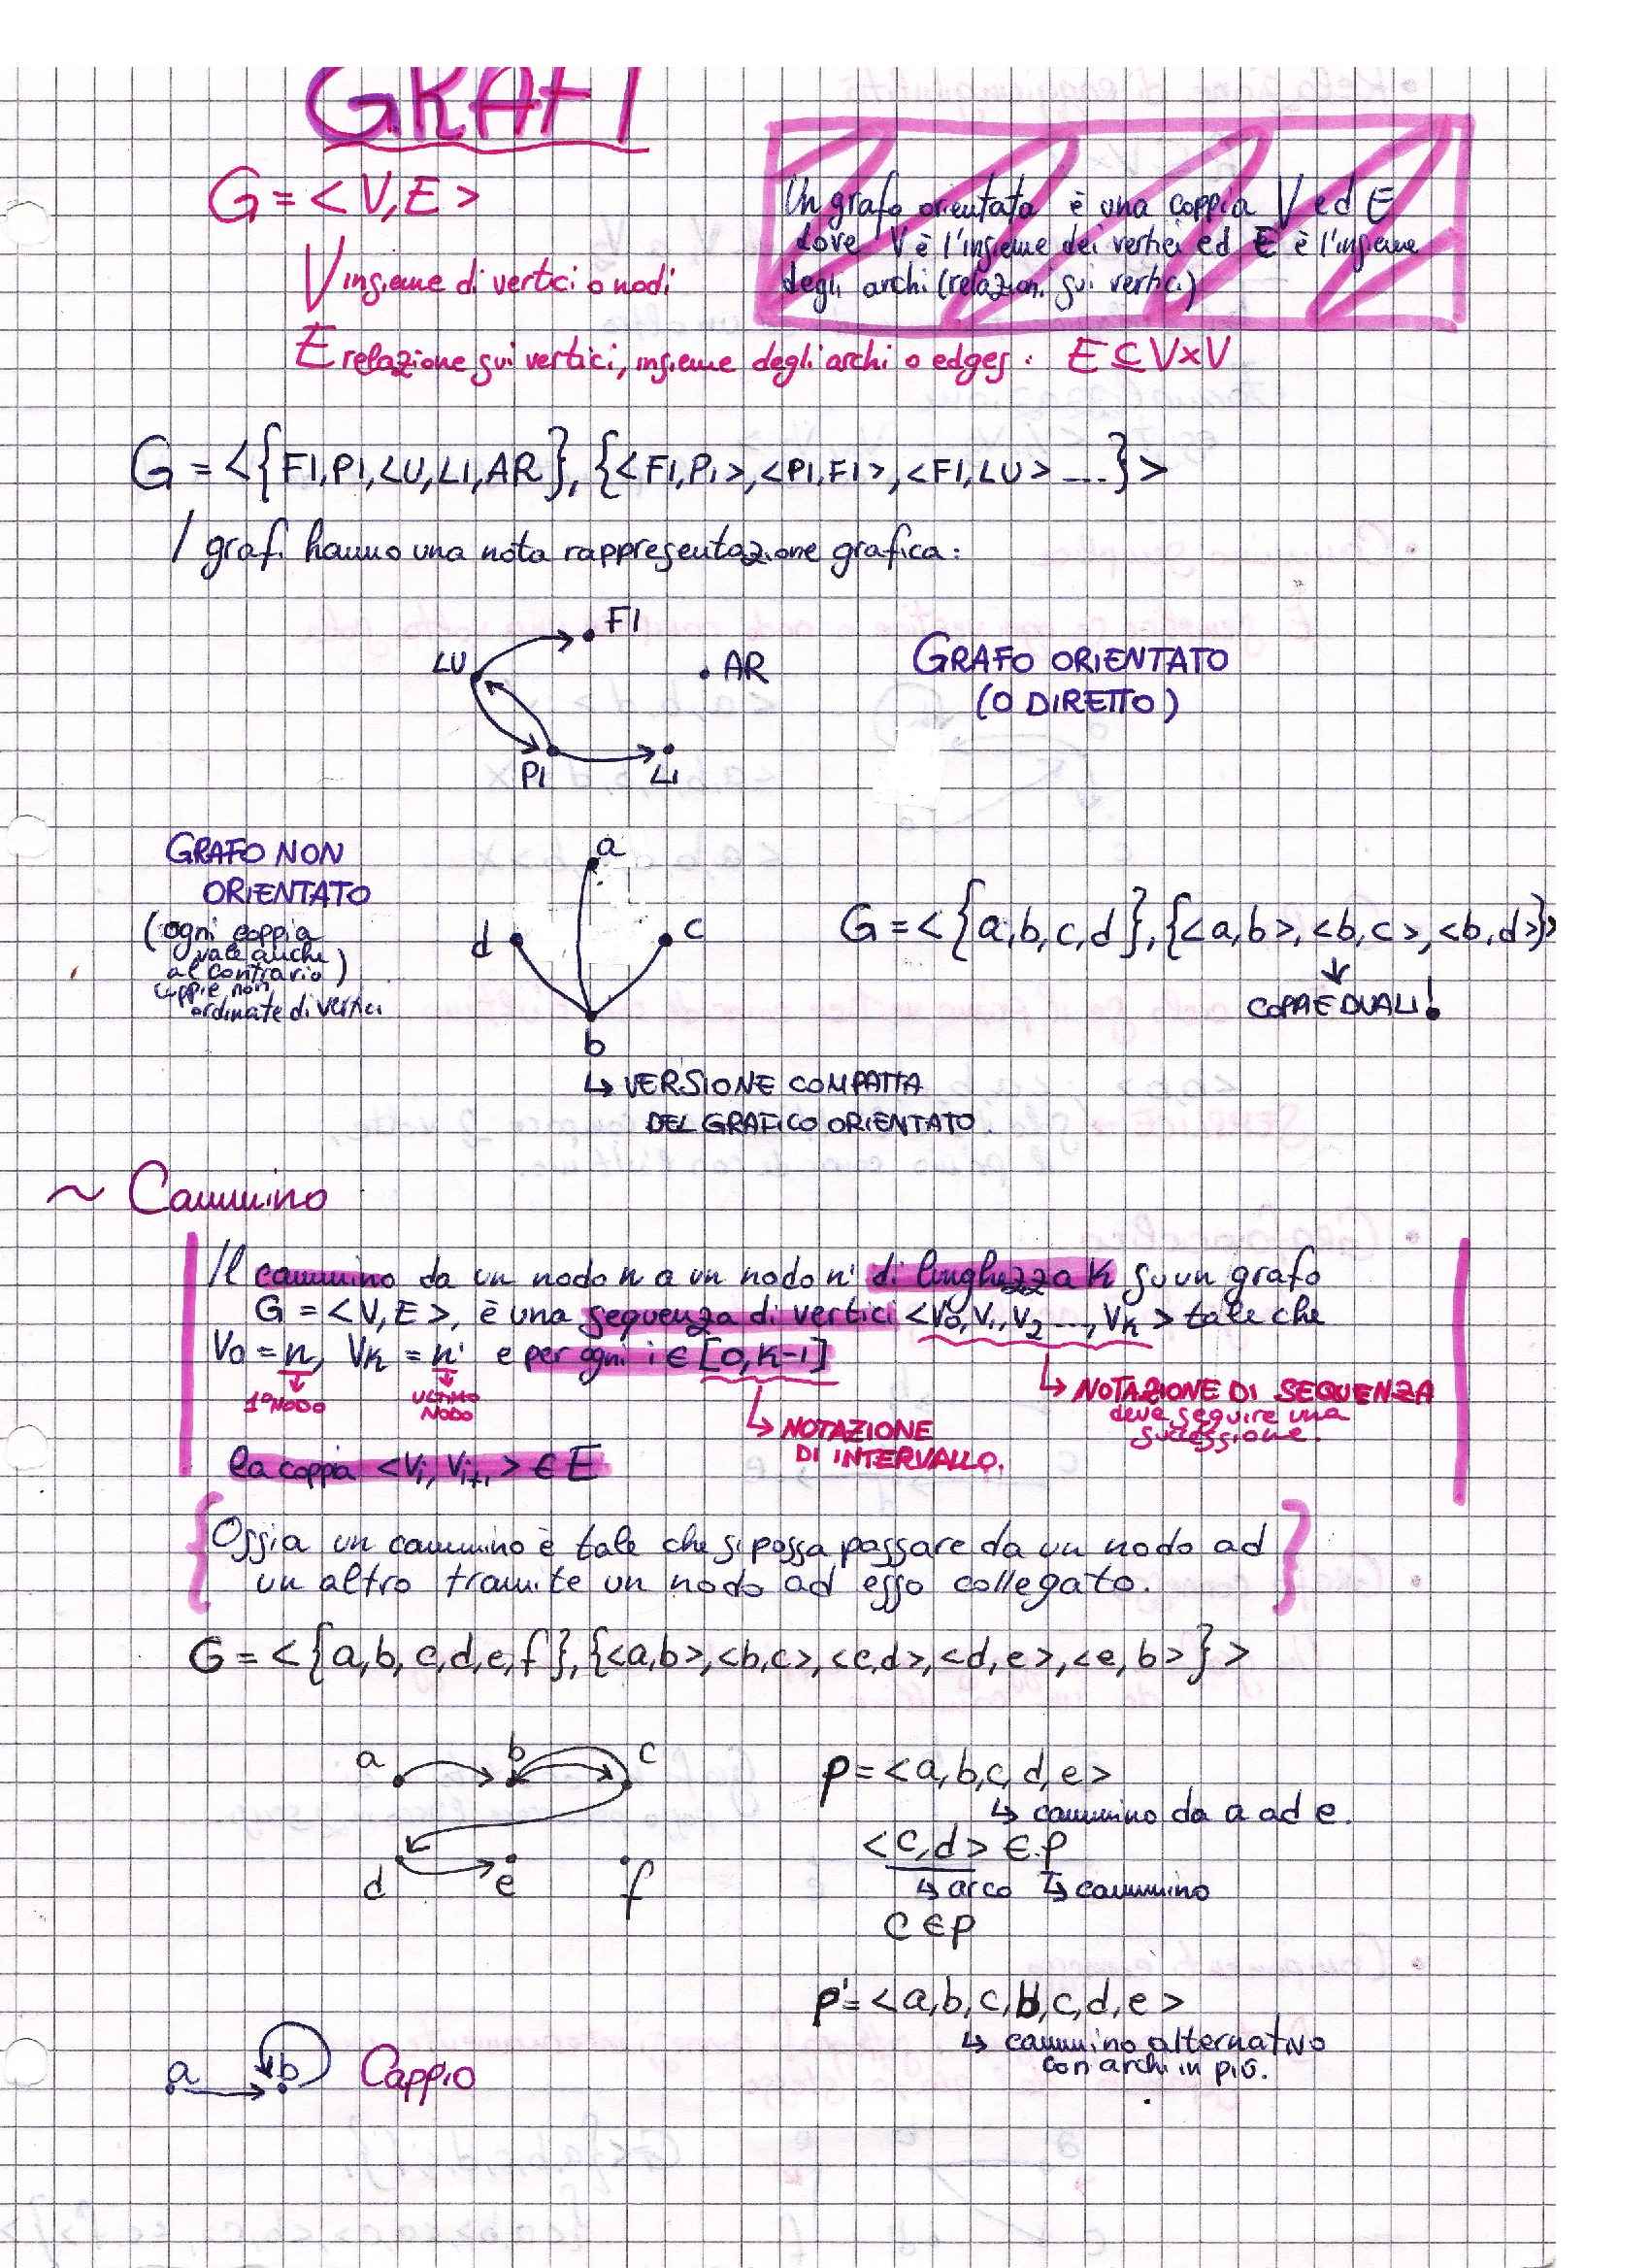 GRAFI
G = < V, E >
Un grafo orientata è una coppia V ed E
dove V è l'insieme dei vertici ed E è l'insieme
degli archi (relazioni sui vertici)
V insieme di vertici o nodi
E relazione sui vertici, insieme degli archi o edges : E ⊆ V×V
G = <{FI, PI, LU, LI, AR}, {<FI, PI>, <PI, FI>, <FI, LU> ...}>
I grafi hanno una nota rappresentazione grafica:
FI
LU
AR
PI
LI
GRAFO ORIENTATO
(O DIRETTO)
GRAFO NON
ORIENTATO
(ogni coppia
vale anche
al contrario)
coppie non
ordinate di vertici
a
d
c
b
G = <{a, b, c, d}, {<a, b>, <b, c>, <b, d>}>
↓
COPPIE DUALI!
↳ VERSIONE COMPATTA
DEL GRAFICO ORIENTATO.
~ Cammino
Il cammino da un nodo n a un nodo n' di lunghezza K su un grafo
G = <V, E>, è una sequenza di vertici <V0, V1, V2 ..., VK> tale che
V0 = n, VK = n' e per ogni i ∈ [0, K-1]
↓ 1° NODO
↓ ULTIMO
NODO
↳ NOTAZIONE
DI INTERVALLO.
↳ NOTAZIONE DI SEQUENZA
deve seguire una
successione.
la coppia <Vi, Vi+1> ∈ E
{Ossia un cammino è tale che si possa passare da un nodo ad
un altro tramite un nodo ad esso collegato.}
G = <{a, b, c, d, e, f}, {<a, b>, <b, c>, <c, d>, <d, e>, <e, b>}>
a b c
d e f
p = <a, b, c, d, e>
↳ cammino da a ad e.
<c, d> ∈ p
↳ arco ↳ cammino
c ∈ p
p' = <a, b, c, b, c, d, e>
↳ cammino alternativo
con archi in più.
a b Cappio